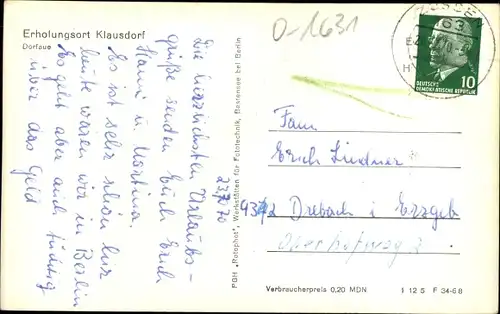 Erholungsort Klausdorf
Dorfaue
O-1631
ZOSSEN
163
DEUTSCHE
DEMOKRATISCHE REPUBLIK
10
Die herzlichsten Urlaubs-
grüße senden Euch Erich
Hanni u. Martina.
Es ist sehr schön hier
heute waren wir in Berlin
Es geht aber auch tüchtig
über das Geld
23.7.70
PGH „Rotophot", Werkstätten für Fototechnik, Bestensee bei Berlin
Fam
Erich Lindner
9372 Drebach i Erzgeb
Verbraucherpreis 0,20 MDN
I 12 5 F 34-68